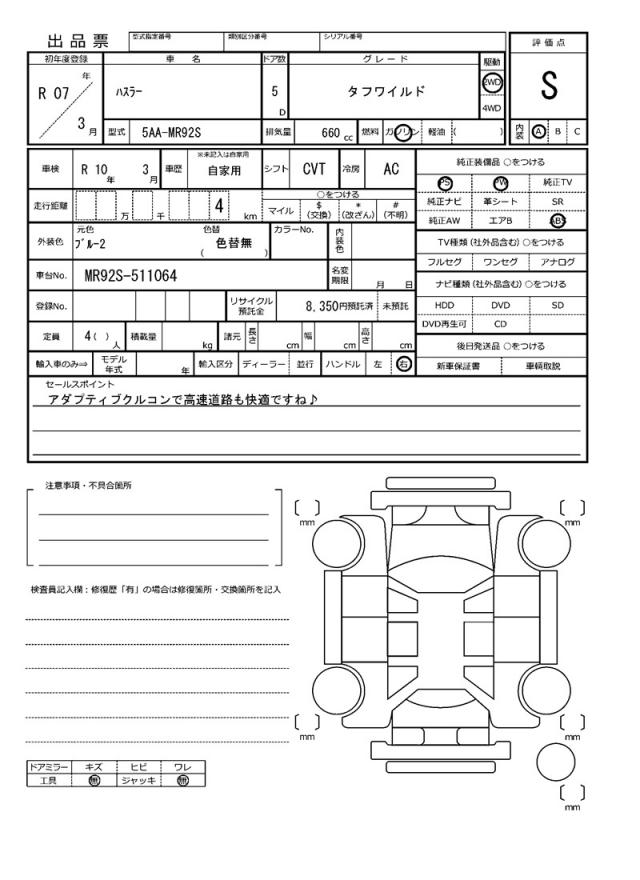 出品票 型式指定番号 類別区分番号 シリアル番号
評価点
初年度登録 車名 ドア数 グレード 駆動
R 07 年 3 月 ハスラー 5 D タフワイルド 2WD 4WD S
型式 5AA-MR92S 排気量 660 cc 燃料 ガソリン 軽油 ( ) 内装 A B C
車検 R 10 年 3 月 車歴 ※未記入は自家用 自家用 シフト CVT 冷房 AC
純正装備品 ○をつける
PS PW 純正TV
純正ナビ 革シート SR
純正AW エアB ABS
走行距離 万 千 4 km ○をつける
マイル $ (交換) * (改ざん) # (不明)
外装色 元色 ブルー2 色替 ( 色替無 ) カラーNo. 内装色
TV種類 (社外品含む) ○をつける
フルセグ ワンセグ アナログ
車台No. MR92S-511064 名変期限 月 日
ナビ種類 (社外品含む) ○をつける
登録No. リサイクル預託金 8,350円預託済 未預託
HDD DVD SD
DVD再生可 CD
定員 4 ( ) 人 積載量 kg 諸元 長さ cm 幅 cm 高さ cm
後日発送品 ○をつける
輸入車のみ⇒ モデル年式 年 輸入区分 ディーラー 並行 ハンドル 左 右
新車保証書 車輌取説
セールスポイント
アダプティブクルコンで高速道路も快適ですね♪
注意事項・不具合箇所
検査員記入欄:修復歴「有」の場合は修復箇所・交換箇所を記入
mm mm
mm mm
mm
ドアミラー キズ ヒビ ワレ
工具 無 ジャッキ 無